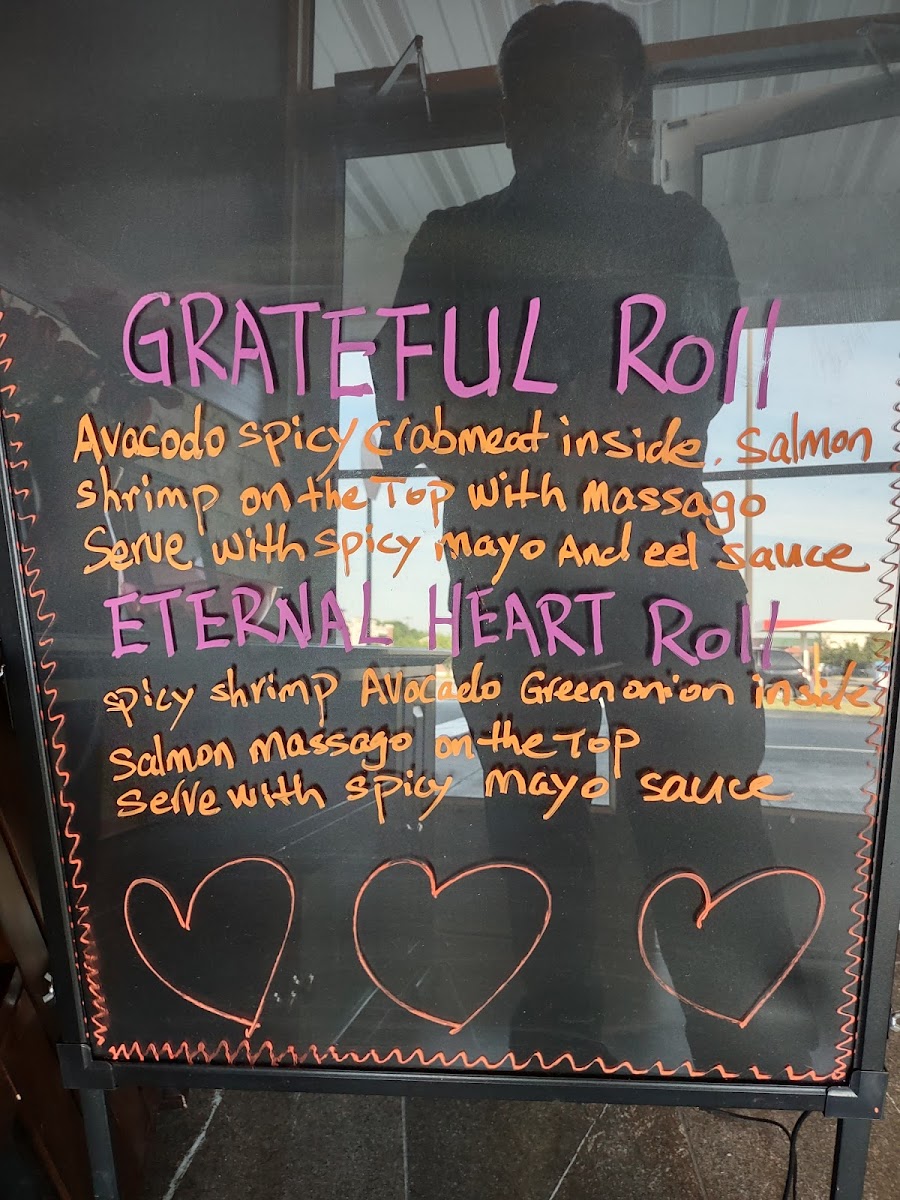 GRATEFUL Roll
Avacodo spicy crabmeat inside. Salmon
shrimp on the Top with Massago
Serve with spicy mayo And eel sauce
ETERNAL HEART Roll
spicy shrimp Avocado Green onion inside
Salmon massago on the Top
serve with spicy mayo sauce